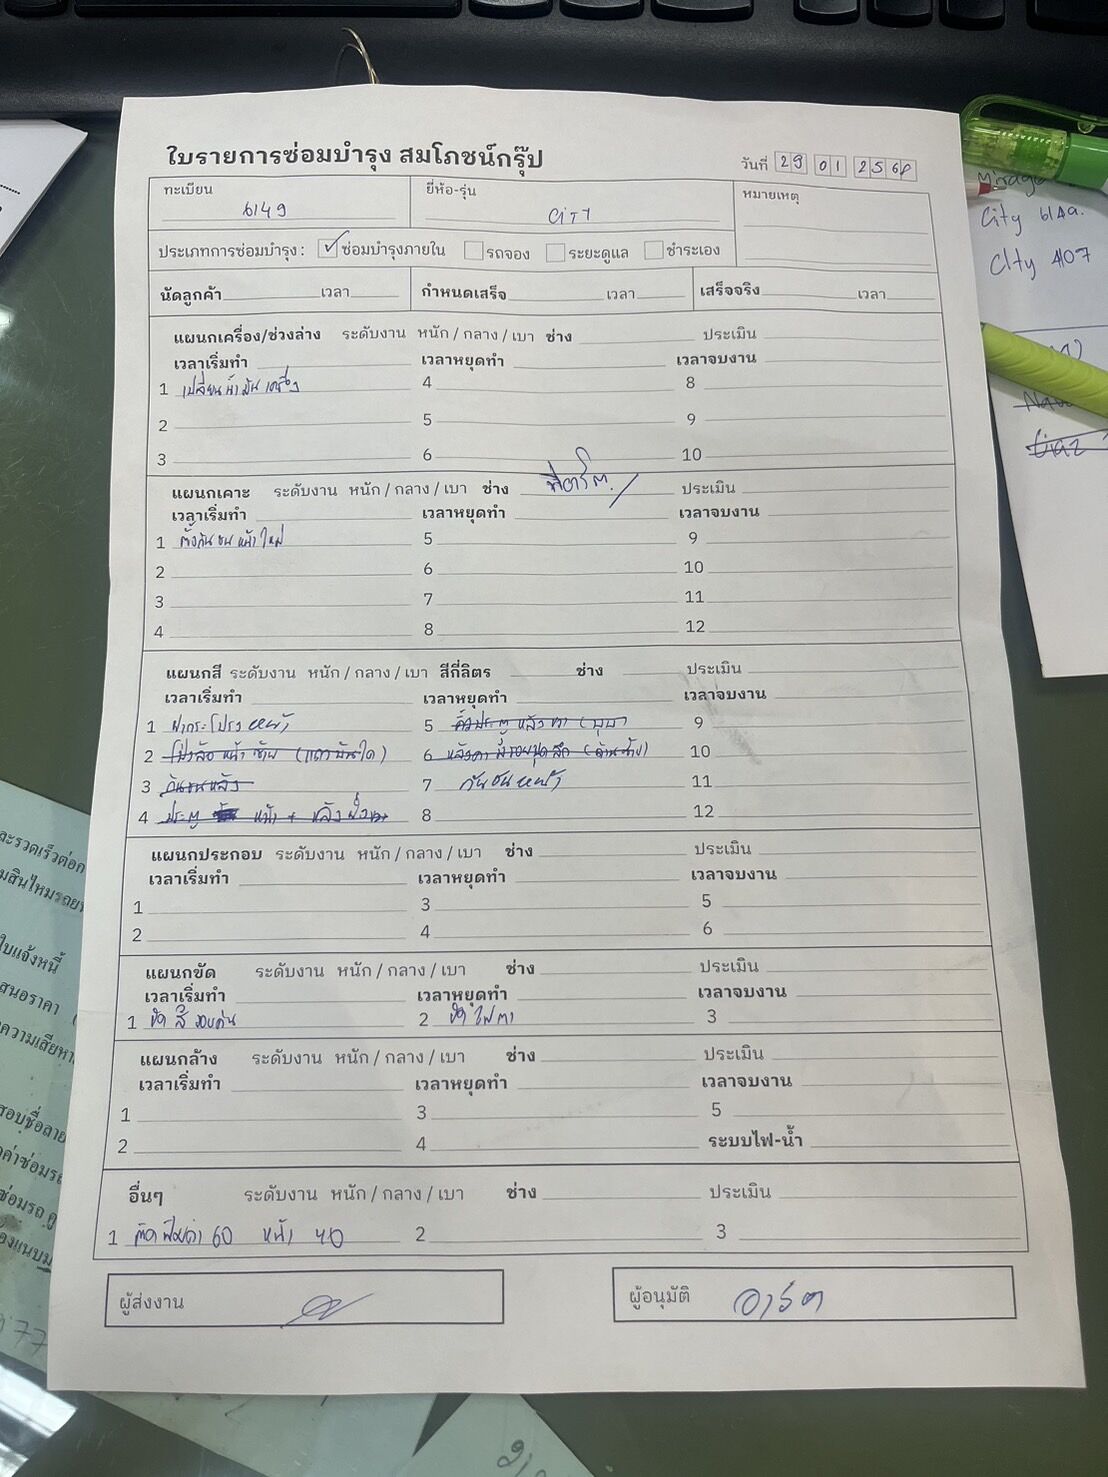 ใบรายการซ่อมบำรุง สมโภชน์กรุ๊ป
วันที่ 29 01 2568
ทะเบียน 6149 ยี่ห้อ-รุ่น CITY หมายเหตุ
ประเภทการซ่อมบำรุง : ✓ ซ่อมบำรุงภายใน รถจอง ระยะดูแล ชำระเอง
นัดลูกค้า เวลา กำหนดเสร็จ เวลา เสร็จจริง เวลา
แผนกเครื่อง/ช่วงล่าง ระดับงาน หนัก / กลาง / เบา ช่าง ประเมิน
เวลาเริ่มทำ เวลาหยุดทำ เวลาจบงาน
1 เปลี่ยนน้ำมันเครื่อง 4 8
2 5 9
3 6 10
แผนกเคาะ ระดับงาน หนัก / กลาง / เบา ช่าง ประเมิน
เวลาเริ่มทำ เวลาหยุดทำ เวลาจบงาน
1 ตั้งกันชนหน้าใหม่ 5 9
2 6 10
3 7 11
4 8 12
แผนกสี ระดับงาน หนัก / กลาง / เบา สีกี่ลิตร ช่าง ประเมิน
เวลาเริ่มทำ เวลาหยุดทำ เวลาจบงาน
1 ฝากระโปรงหน้า 5 9
2 หน้าซ้าย 6 10
3 กันชนหลัง 7 กันชนหน้า 11
4 ประตู หน้า + หลัง 8 12
แผนกประกอบ ระดับงาน หนัก / กลาง / เบา ช่าง ประเมิน
เวลาเริ่มทำ เวลาหยุดทำ เวลาจบงาน
1 3 5
2 4 6
แผนกขัด ระดับงาน หนัก / กลาง / เบา ช่าง ประเมิน
เวลาเริ่มทำ เวลาหยุดทำ เวลาจบงาน
1 ขัดสีรอบคัน 2 ขัดไฟตา 3
แผนกล้าง ระดับงาน หนัก / กลาง / เบา ช่าง ประเมิน
เวลาเริ่มทำ เวลาหยุดทำ เวลาจบงาน
1 3 5
2 4 ระบบไฟ-น้ำ
อื่นๆ ระดับงาน หนัก / กลาง / เบา ช่าง ประเมิน
1 60 หน้า 40 2 3
ผู้ส่งงาน ผู้อนุมัติ อาร์ต
City 6149
City 4107
ใบแจ้งหนี้